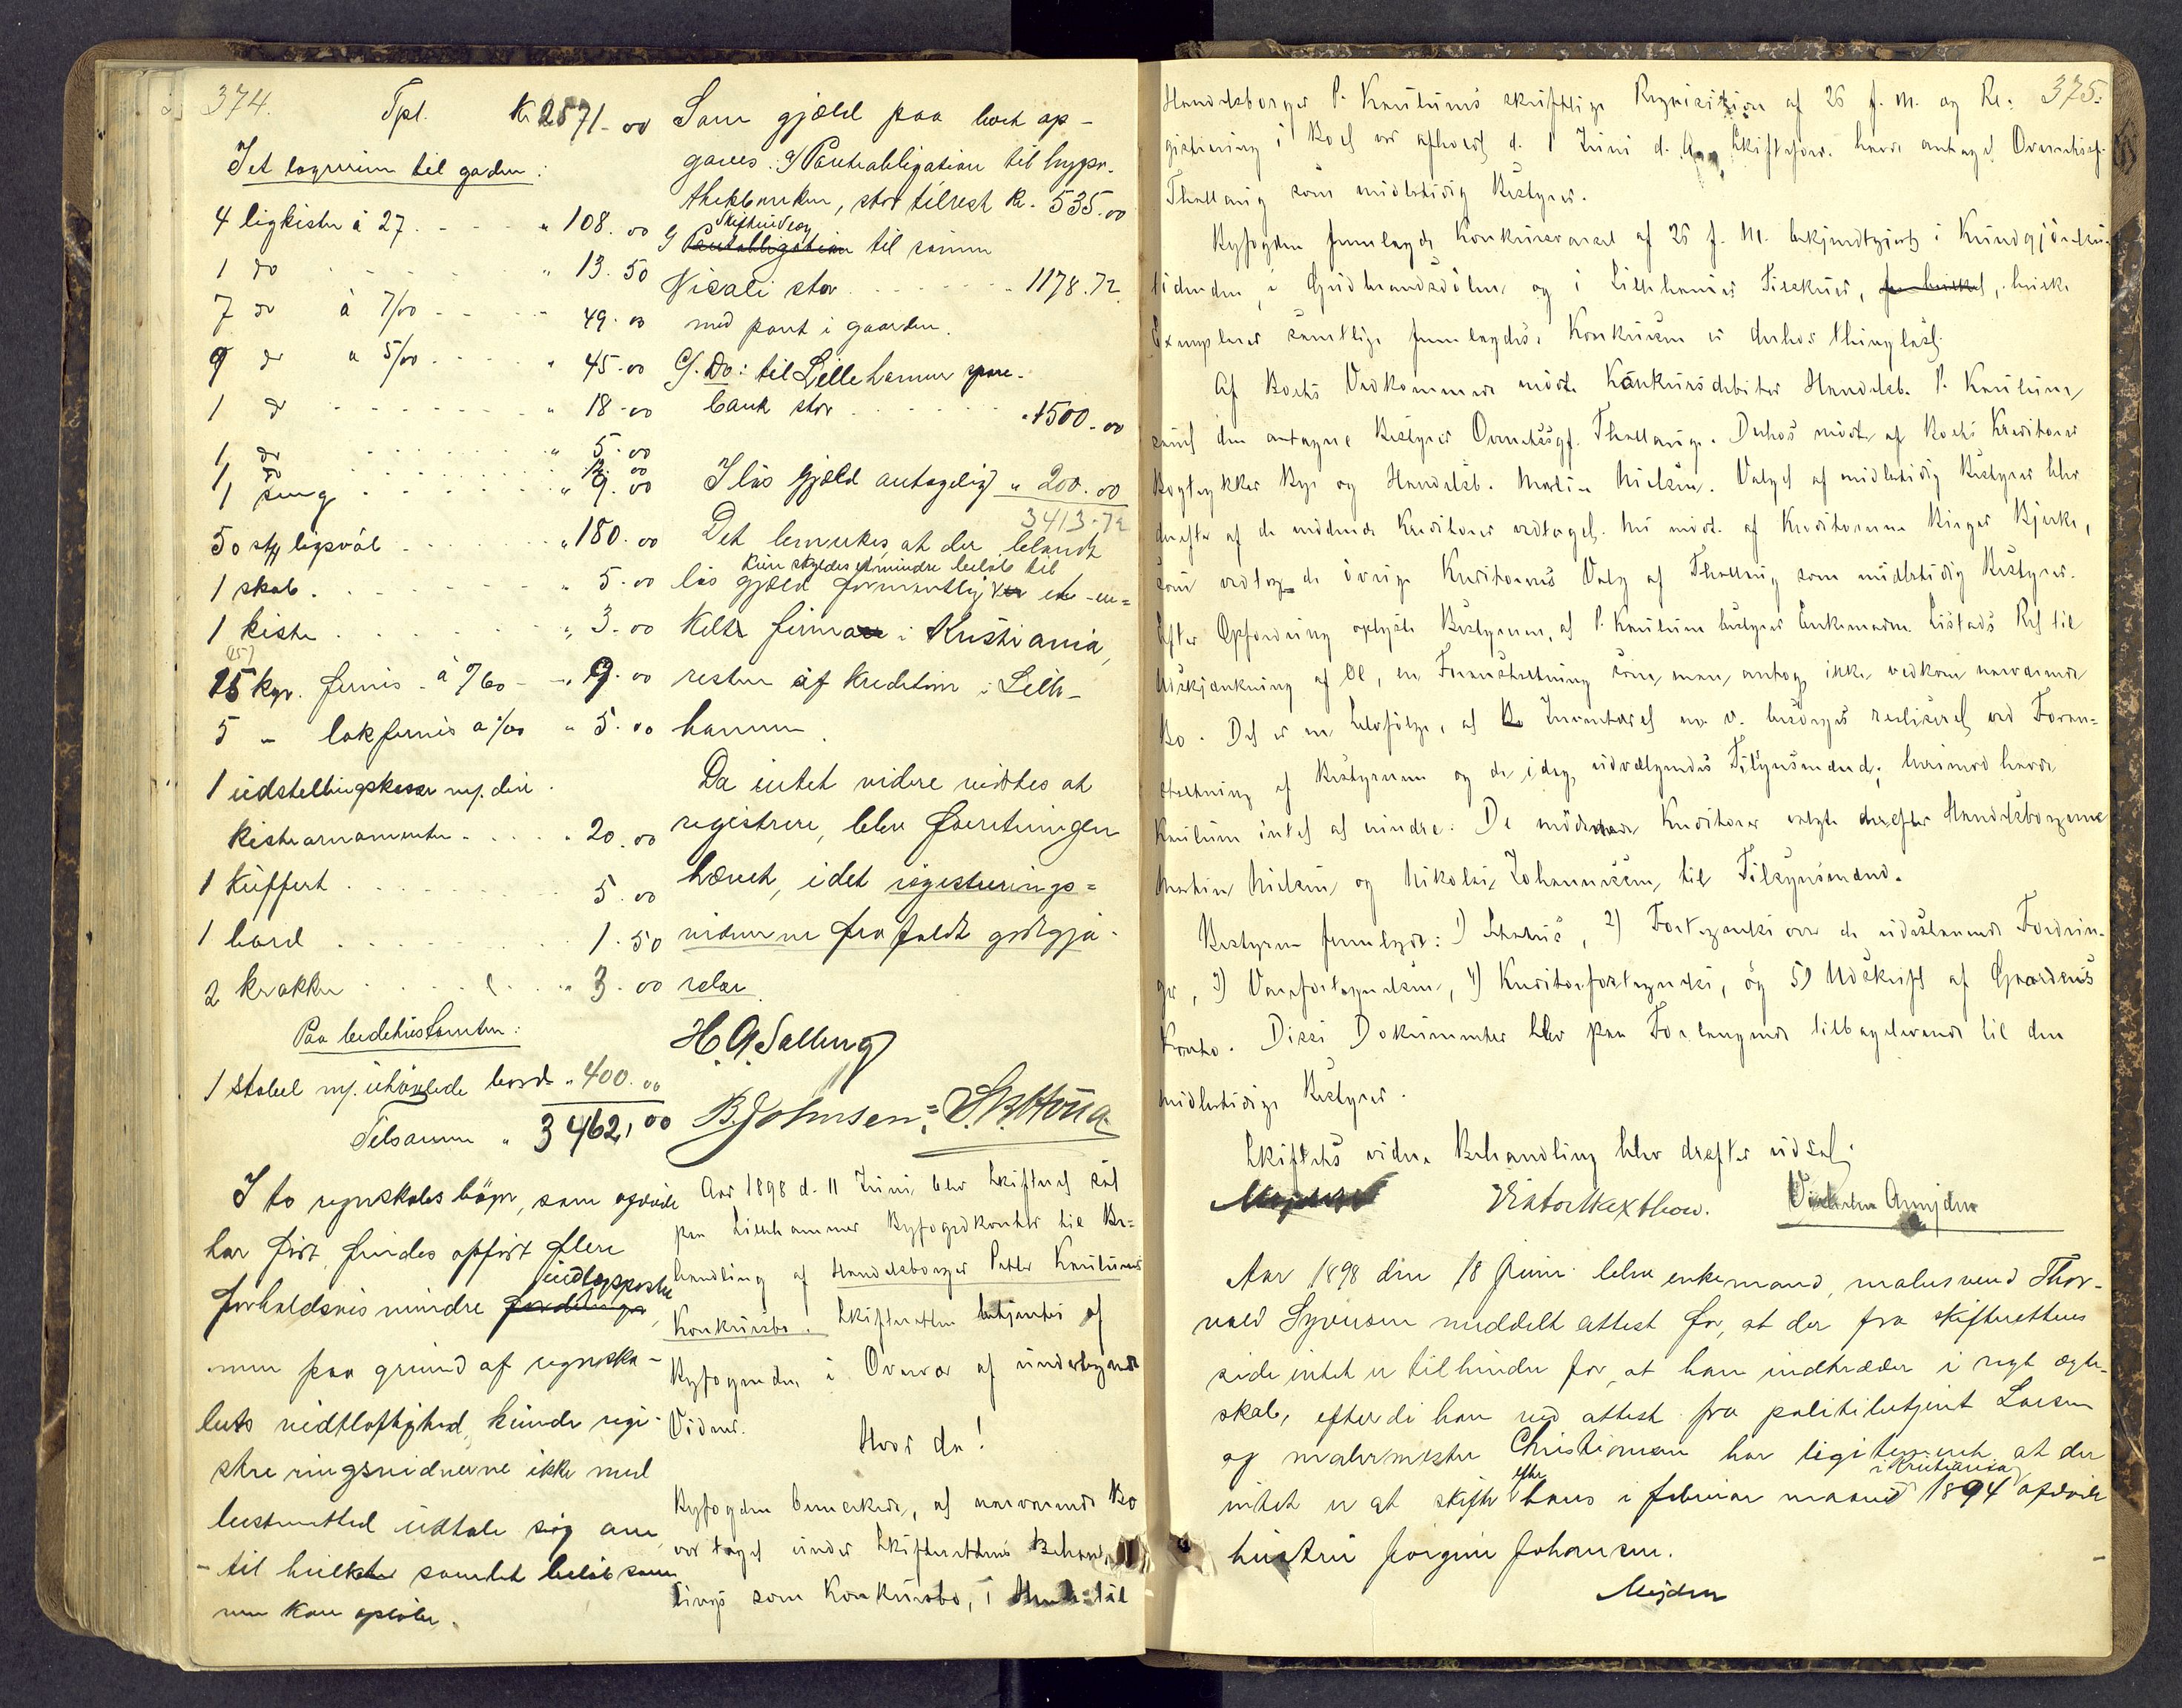 374.
Tpl. Kr 2571.00
I et lagerrum til gaden:
4 ligkister à 27. . . . " 108.00
1 do . . . . " 13.50
7 do à 7/00 . . . 49.00
9 do a 5/00 . . . " 45.00
1 do . . . . " 18.00
1 do . . . . " 5.00
1 do . . . . 12.00
1 seng . . . . " 9.00
50 stk ligsvøb . . . . " 180.00
1 skab . . . . " 5.00
1 kiste . . . . " 3.00
15 kgr. fernis à 0/60 - " 9.00
5 " lakfernis a 1/00 " 5.00
1 udstellingskasse m/ dive
kisteornamenter . . . . " 20.00
1 kuffert . . . . 5.00
1 bord . . . . 1.50
2 krakker . . . . " 3.00
Paa bedehustomten:
1 stabel m/ uhøvlede bord " 400.00
Tilsammen " 3462,00
I to regnskabsbøger, som afdøde
har ført, findes opført flere
forholdsvis mindre indtægtsposter
men paa grund af regnska-
bets vidtløftighed kunde regi-
streringsvidnerne ikke med
bestemthed udtale sig om
- til hvilket samlet beløb som
men kan opløbe.
Som gjæld paa boet op-
gaves: a/ Pantobligation til hypo-
thekbanken, stor tilrest kr. 535.00
b/ Skifteudlæg til samme
Nicoli stor . . . . 1178.72
med pant i gaarden.
c/ Do: til Lillehammer spare-
bank stor . . . . 1500.00
I løs gjæld antagelig " 200.00
3413.72
Det bemerkes, at der blandt
kun skyldes et mindre beløb til
løs gjæld formentlig et en-
kelt firma i Kristiania,
resten af kreditorer i Lille-
hammer.
Da intet videre vidstes at
registrere, blev forretningen
hævet, idet registrerings-
vidnerne frafaldt godtgjø-
relse.
H. A. Salberg
B. Johnsen
Aar 1898 d. 11 Juni blev Skifteret sat
paa Lillehammer Byfogedkontor til Be-
handling af Handelsborger Petter Kaulums
Konkursbo. Skifteretten betjentes af
Byfogden i Overvær af undertegnede
Vidner.
Hvor da!
Byfogden bemerkede, at nærværende Bo
var taget under Skifterettens Behand-
lings som Konkursbo, i Henhold til
375.
Handelsborger P. Kaulums skriftlige Reqvisition af 26 f. M. og Re-
gistrering i Boet var afholdt d. 1 Juni d. A. Skifteforv. havde antaget Overretssagf.
Thallaug som midlertidig Bestyrer.
Byfogden fremlagde Konkursvarsel af 26 f. M. bekjendtgjort i Kundgjørelses-
tidenden, i Gudbrandsdølen og i Lillehammer Tilskuer, hvilke
Exemplarer samtlige fremlagdes. Konkursen er derhos thinglæst.
Af Boets Vedkommende mødte Konkursdebitor Handelsb. P. Kaulum,
samt den antagne Bestyrer Overretssagf. Thallaug. Derhos mødte af Boets Kreditorer
Bogtrykker Bye og Handelsb. Martin Nielsen. Valget af midlertidig Bestyrer blev
derefter af de mødende Kreditorer vedtaget. Nu mødte af Kreditorerne Birger Bjerke,
som vedtog de øvrige Kreditorers Valg af Thallaug som midlertidig Bestyrer.
Efter Opfordring oplyste Bestyreren, at P. Kaulum bestyrer Enkemadm. Listads Ret til
Udskjænkning af Øl, en Foranstaltning som man antog ikke vedkom nærværende
Bo. Det er en Selvfølge, at Inventaret m. v. besørges realiseret ved Foran-
staltning af Bestyreren og de idag udvælgendes Tilsynsmænd; herimod havde
Kaulum intet at erindre. De mødende Kreditorer valgte derefter Handelsborgerne
Martin Nielsen og Nikolai Johannesen til Tilsynsmænd.
Bestyreren fremlagde: 1) Status, 2) Fortegnelse over de udestaaende Fordrin-
ger, 3) Varefortegnelsen, 4) Kreditorfortegnelse, og 5) Udskrift af Gaardens
Konto. Disse Dokumenter blev paa Forlangende tilbageleveret til den
midlertidige Bestyrer.
Skiftets videre Behandling blev derefter udsat.
Mejdell Victor Wexthow. Vilhelm
Aar 1898 den 18 Juni blev enkemand, malersvend Thor-
vald Syversen meddelt attest for, at der fra skifterettens
side intet er tilhinder for, at han indtræder i nyt ægte-
skab, efterdi han ved attest fra politibetjent Larsen
og malermester Christiansen har legitimeret, at der
intet er at skifte efter hans i februar maaned 1894 i Kristiania afdøde
hustru Jørgine Johansen.
Mejdell